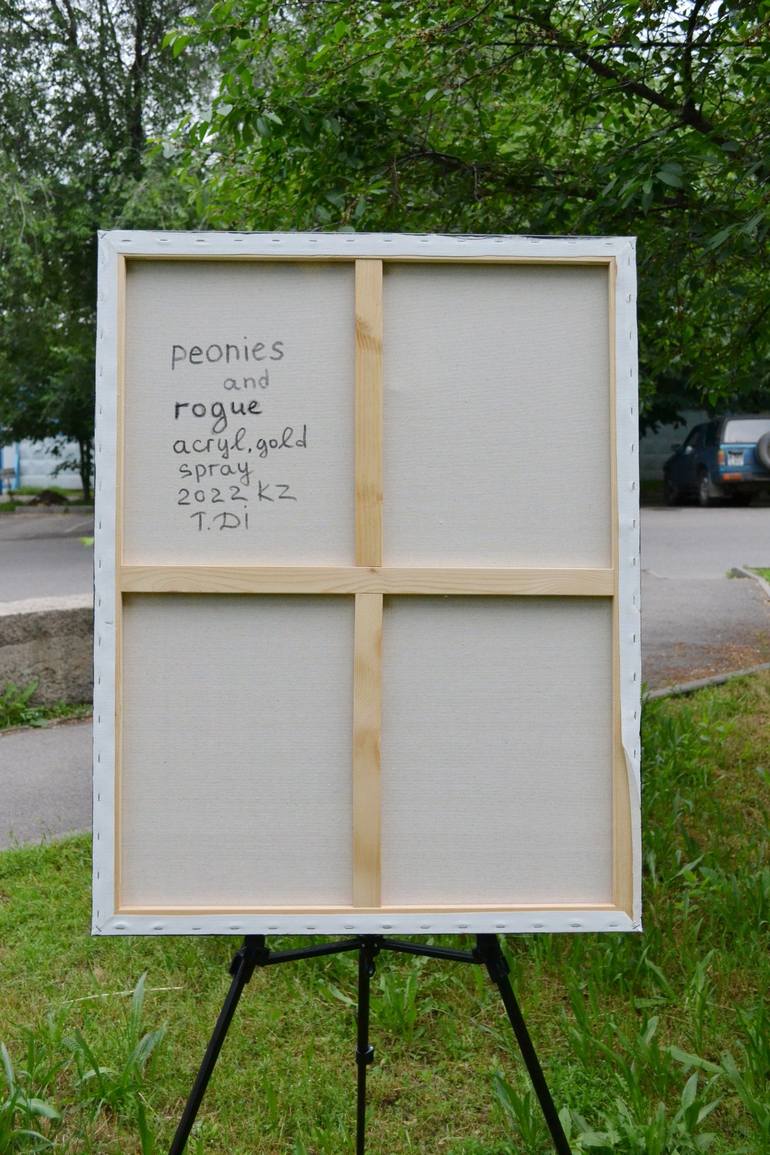 peonies
and
rogue
acryl, gold
spray
2022 KZ
T.Di